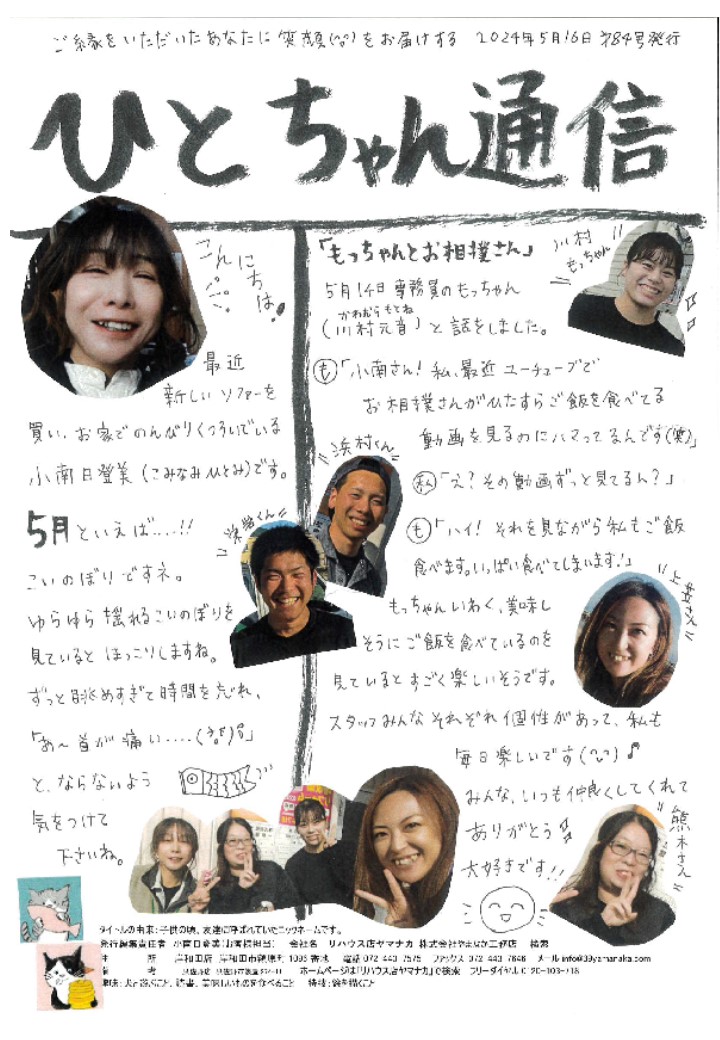 ご縁をいただいたあなたに笑顔(^o^)をお届けする 2024年5月16日 第84号発行
ひとちゃん通信
こんにちは!
最近
新しいソファーを
買い、お家でのんびりくつろいでいる
小南日登美(こみなみひとみ)です。
5月といえば....!!
こいのぼりですネ。
ゆらゆら揺れるこいのぼりを
見ているとほっこりしますね。
ずっと眺めすぎて時間を忘れ、
「あ〜首が痛い....
と、ならないよう
気をつけて
下さいね。
「もっちゃんとお相撲さん」
川村
もっちゃん
5月14日 事務員のもっちゃん
かわむらもとね
(川村元音)と話をしました。
も「小南さん!私、最近ユーチューブで
お相撲さんがひたすらご飯を食べてる
動画を見るのにハマってるんです(笑)」
私「え?その動画ずっと見てるん?」
も「ハイ!それを見ながら私もご飯
食べます。いっぱい食べてしまいます。」
もっちゃんいわく、美味し
そうにご飯を食べているのを
見ているとすごく楽しいそうです。
スタッフみんなそれぞれ個性があって、私も
毎日楽しいです
みんな、いつも仲良くしてくれて
ありがとう
大好きです!!
浜村くん
くん
さん
熊木さん
タイトルの由来:子供の頃、友達に呼ばれていたニックネームです。
発行編集責任者 小南日登美(お客様担当) 会社名 リハウス店ヤマナカ 株式会社やまなか工務店 検索
住 所 岸和田店 岸和田市額原町1095番地 電話 072-443-7575 ファックス 072-443-7646 メール info@39yamanaka.com
備 考 ホームページは「リハウス店ヤマナカ」で検索 フリーダイヤル 0120-103-718
趣味:犬と遊ぶこと、読書、美味しいものを食べること 特技:絵を描くこと